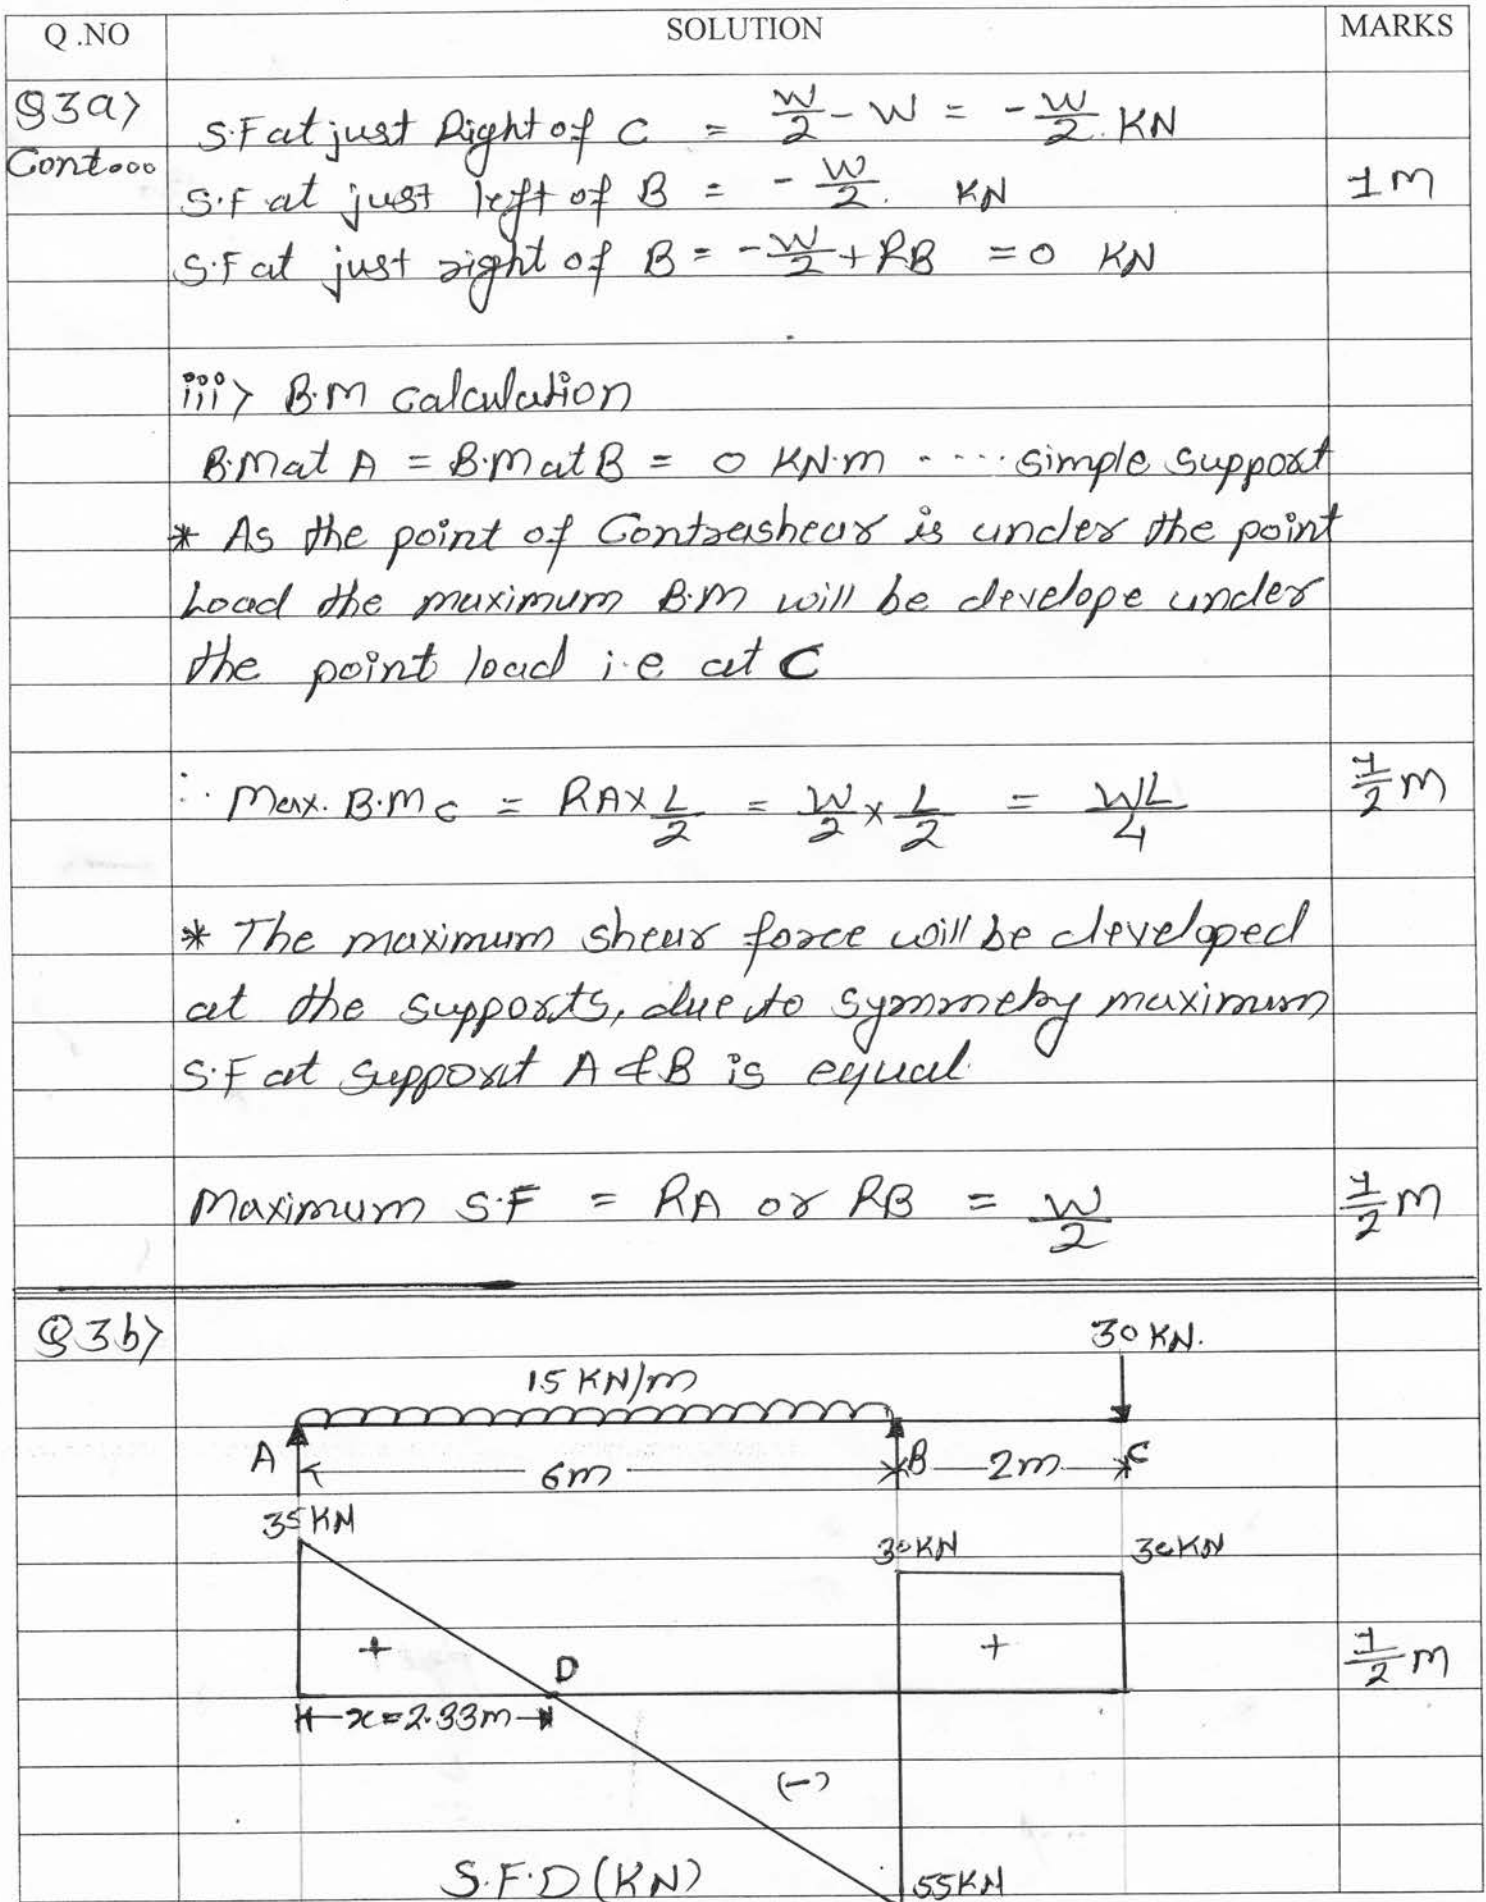 Q.NO SOLUTION MARKS
Q3a> S.F at just Right of C = W/2 - W = -W/2. KN
Cont...
S.F at just left of B = - W/2. KN 1M
S.F at just right of B = -W/2 + RB = 0 KN
iii> B.M calculation
B.M at A = B.M at B = 0 KN.m ---- simple support
* As the point of Contrashear is under the point
Load the maximum B.M will be develope under
the point load i.e at C
∴ Max. B.M c = RA x L/2 = W/2 x L/2 = WL/4 1/2 M
* The maximum shear force will be developed
at the supports, due to symmetry maximum
S.F at support A & B is equal.
Maximum S.F = RA or RB = W/2 1/2 M
Q3b>
30 KN.
15 KN/m
A 6m B 2m C
35 KN
30KN 30KN
+ + 1/2 M
D
x=2.33m
(-)
S.F.D (KN) 55KN